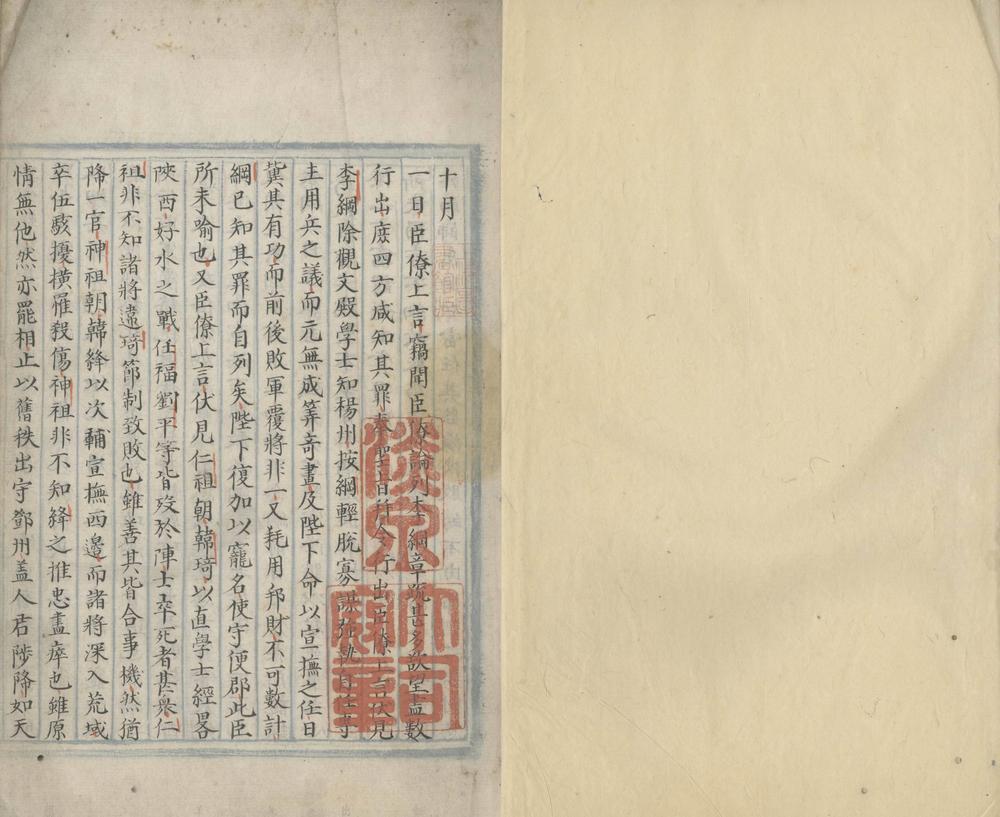 十月
一日臣僚上言竊聞臣僚論列李綱章疏甚多欲望盡數
行出庶四方咸知其罪奉聖旨並令行出臣僚上言伏見
李綱除觀文殿學士知楊州按綱輕脫寡謀強執自任專
主用兵之議而元無成筭奇畫及陛下命以宣撫之任日
冀其有功而前後敗軍覆將非一又耗用邦財不可數計
綱已知其罪而自列矣陛下復加以寵名使守便郡此臣
所未喻也又臣僚上言伏見仁祖朝韓琦以直學士經畧
陝西好水之戰任福劉平等皆歿於陣士卒死者甚衆仁
祖非不知諸將違琦節制致敗也雖善其皆合事機然猶
降一官神祖朝韓絳以次輔宣撫西邊而諸將深入荒域
卒伍駭擾橫罹殺傷神祖非不知絳之推忠盡瘁也雖原
情無他然亦罷相止以舊秩出守鄧州盖人君陟降如天